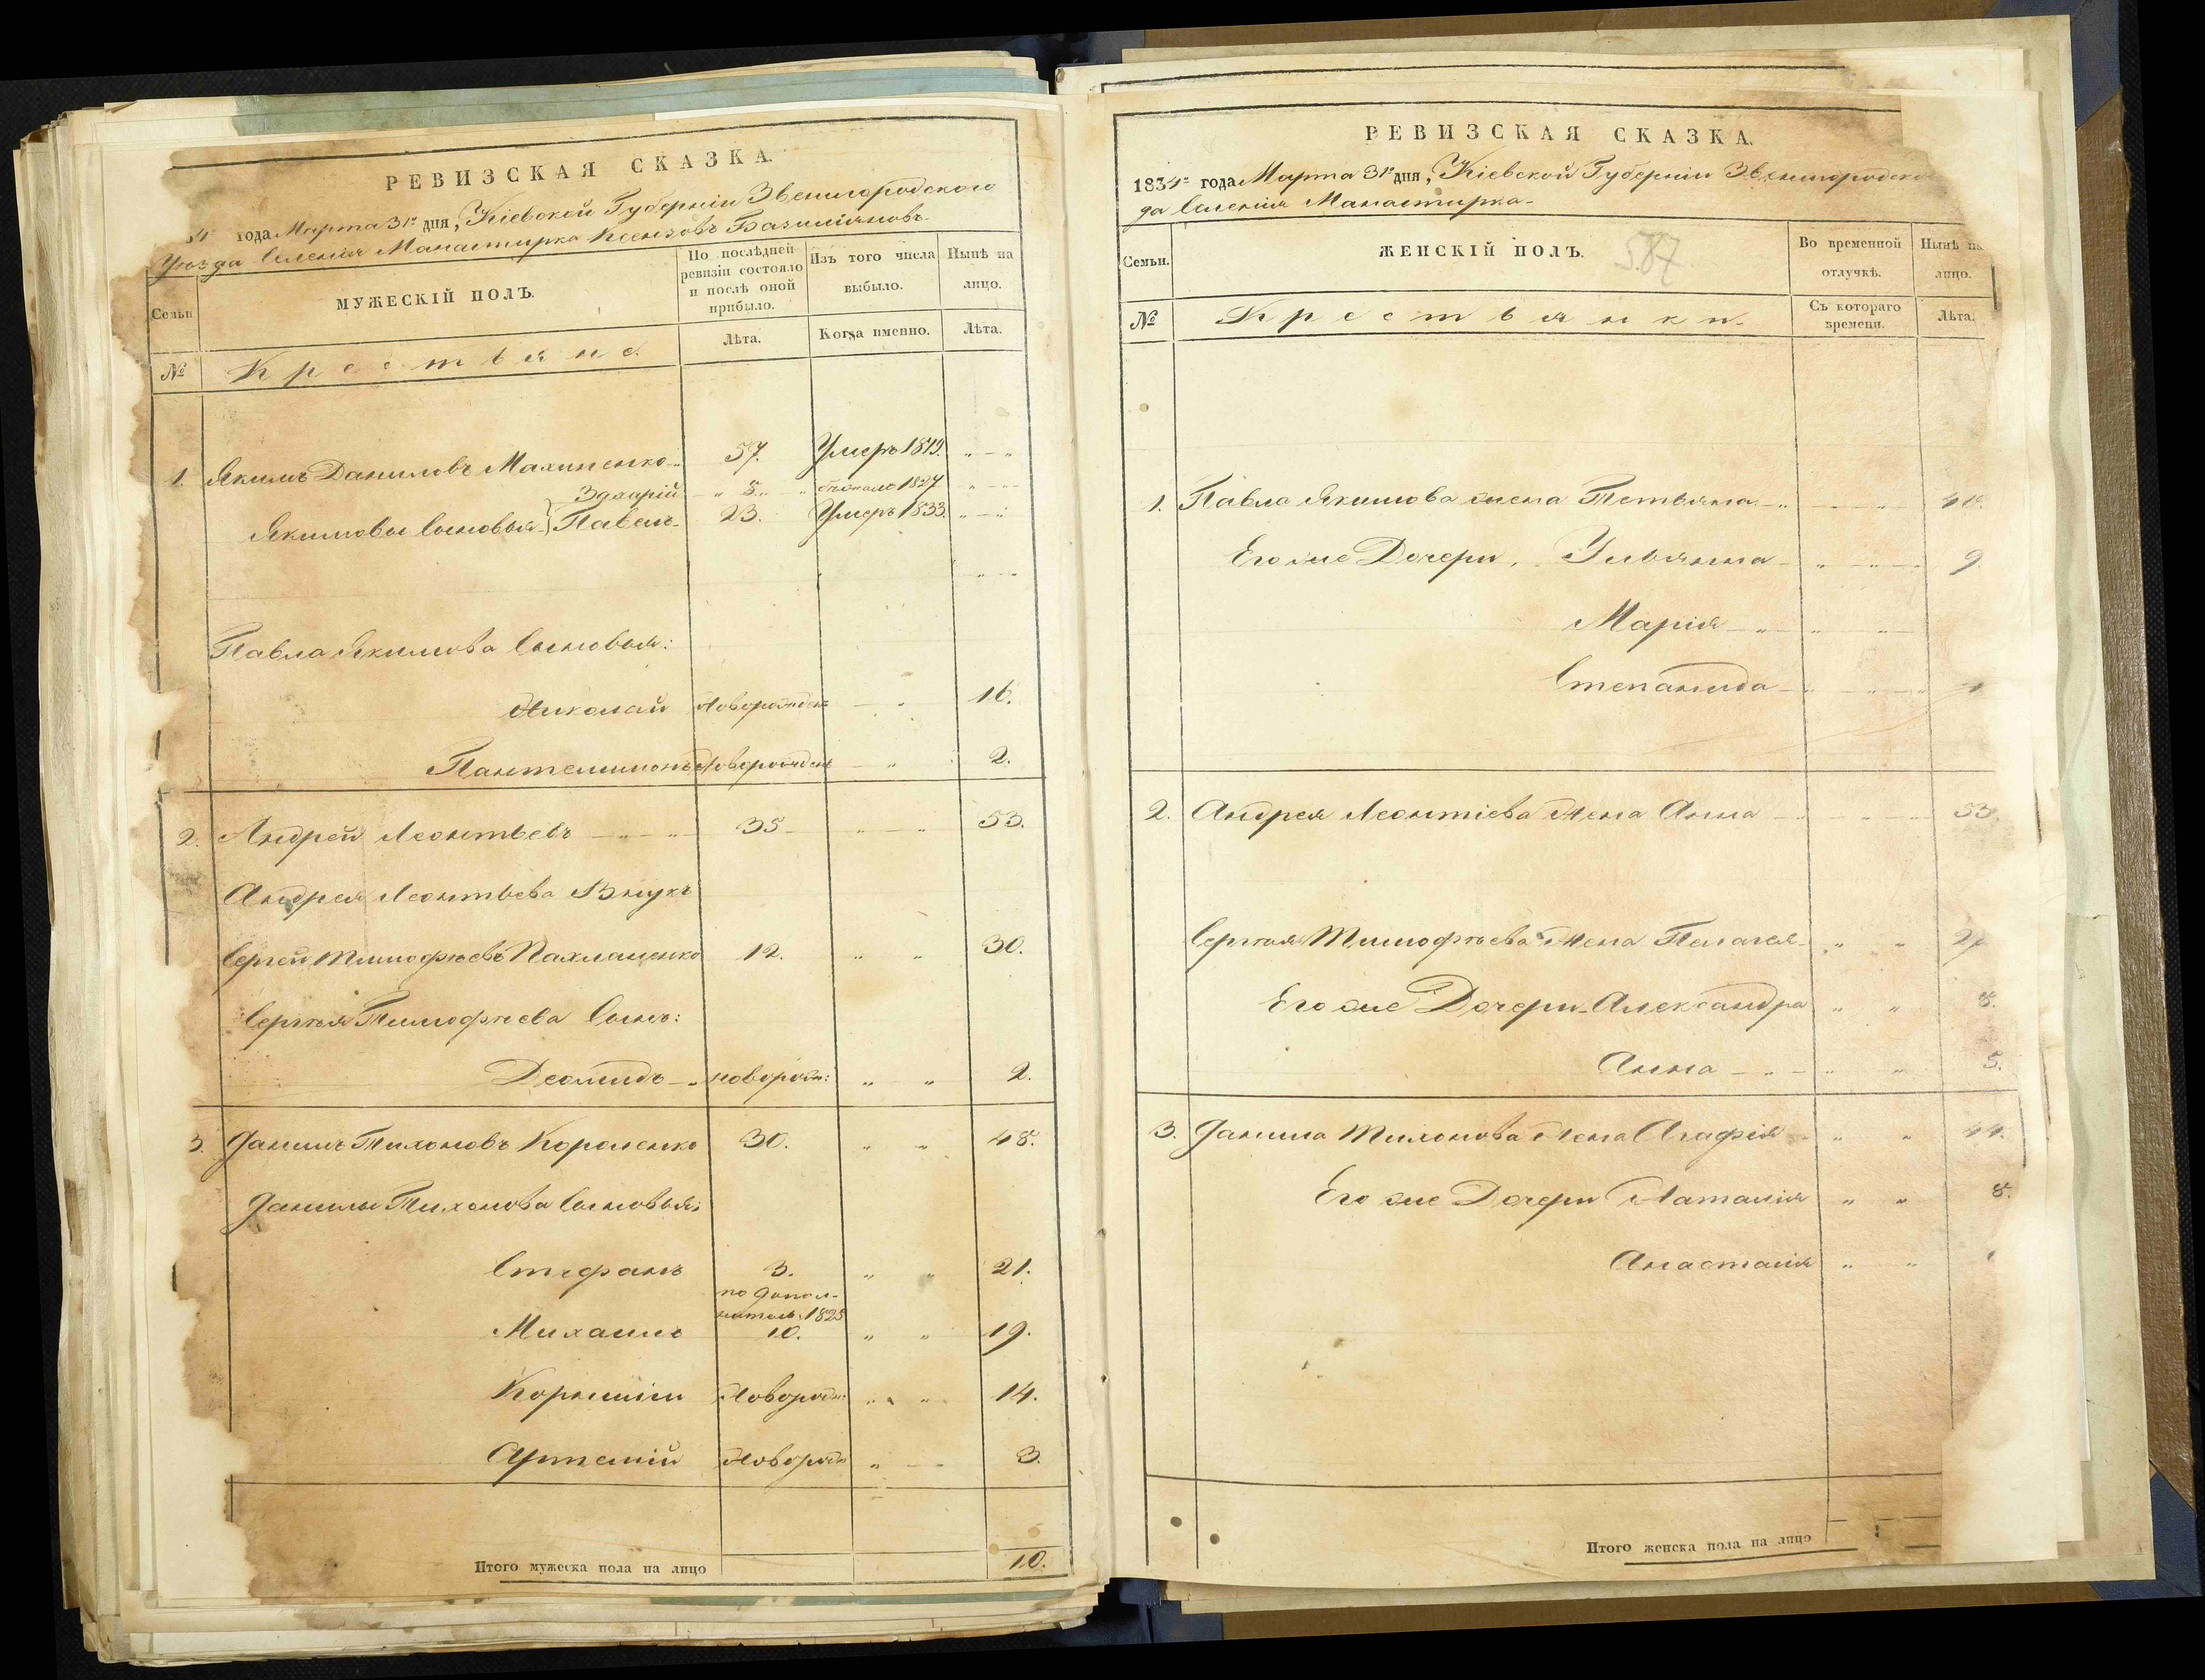 РЕВИЗСКАЯ СКАЗКА.
года Марта 31го дня, Кіевской Губерніи Звенигородского
Уѣзда Селенія Манастирка Ксензовъ Базиліяновъ
Семьи
МУЖЕСКІЙ ПОЛЪ.
По послѣдней ревизіи состояло и послѣ оной прибыло.
Изъ того числа выбыло.
Нынѣ на лицо.
№
Крестьяне.
Лѣта.
Когда именно.
Лѣта.
1. Якимъ Даниловъ Махиненко 57. Умеръ 1819. " - "
Захарій " 5. " 1827 " - -
Якимовы Сыновья Павелъ 23. Умеръ 1833. " - "
Павла Якимова Сыновья:
Николай Новорожден - " 16.
Пантелимонъ Новорожден - " 2.
2. Андрей Леонтьевъ - " - " 35 " - " 53.
Андрея Леонтьева Внукъ
Сергей Тимофѣевъ 12. " " 30.
Сергѣя Тимофѣева Сынъ:
Деомидъ - " новорож: " " 2.
3. Данилъ Тихоновъ Короленко 30. " " 48.
Данилы Тихонова Сыновья:
Стефанъ 3. " " 21.
по допол-
нитель. 1825
Михаилъ 10. " " 19.
Корнилій Новорож: " " 14.
Артемій Новорож " - - 3.
Итого мужеска пола на лицо 10.
РЕВИЗСКАЯ СКАЗКА.
1834го года Марта 31го дня, Кіевской Губерніи Звенигородско
да Селенія Манастирка
Семьи.
ЖЕНСКІЙ ПОЛЪ.
587
Во временной отлучкѣ.
Нынѣ на лицо.
№
Крестьянки.
Съ котораго времени.
Лѣта.
1. Павла Якимова жена Тетьяна - " - - " - 41.
Его же Дочери, Ульянна - " - " - 9
Марія - " - " "
Степанида - " - " -
2. Андрея Леонтіева Жена Анна - - - " - 53.
Сергѣя Тимофѣева Жена Пелагея - " " 27
Его же Дочери Александра " " 8.
Анна - " - " " 5.
3. Данила Тихонова Жена Агафія - " " 44.
Его же Дочери Наталія " " 8.
Анастасія " "
Итого женска пола на лицо